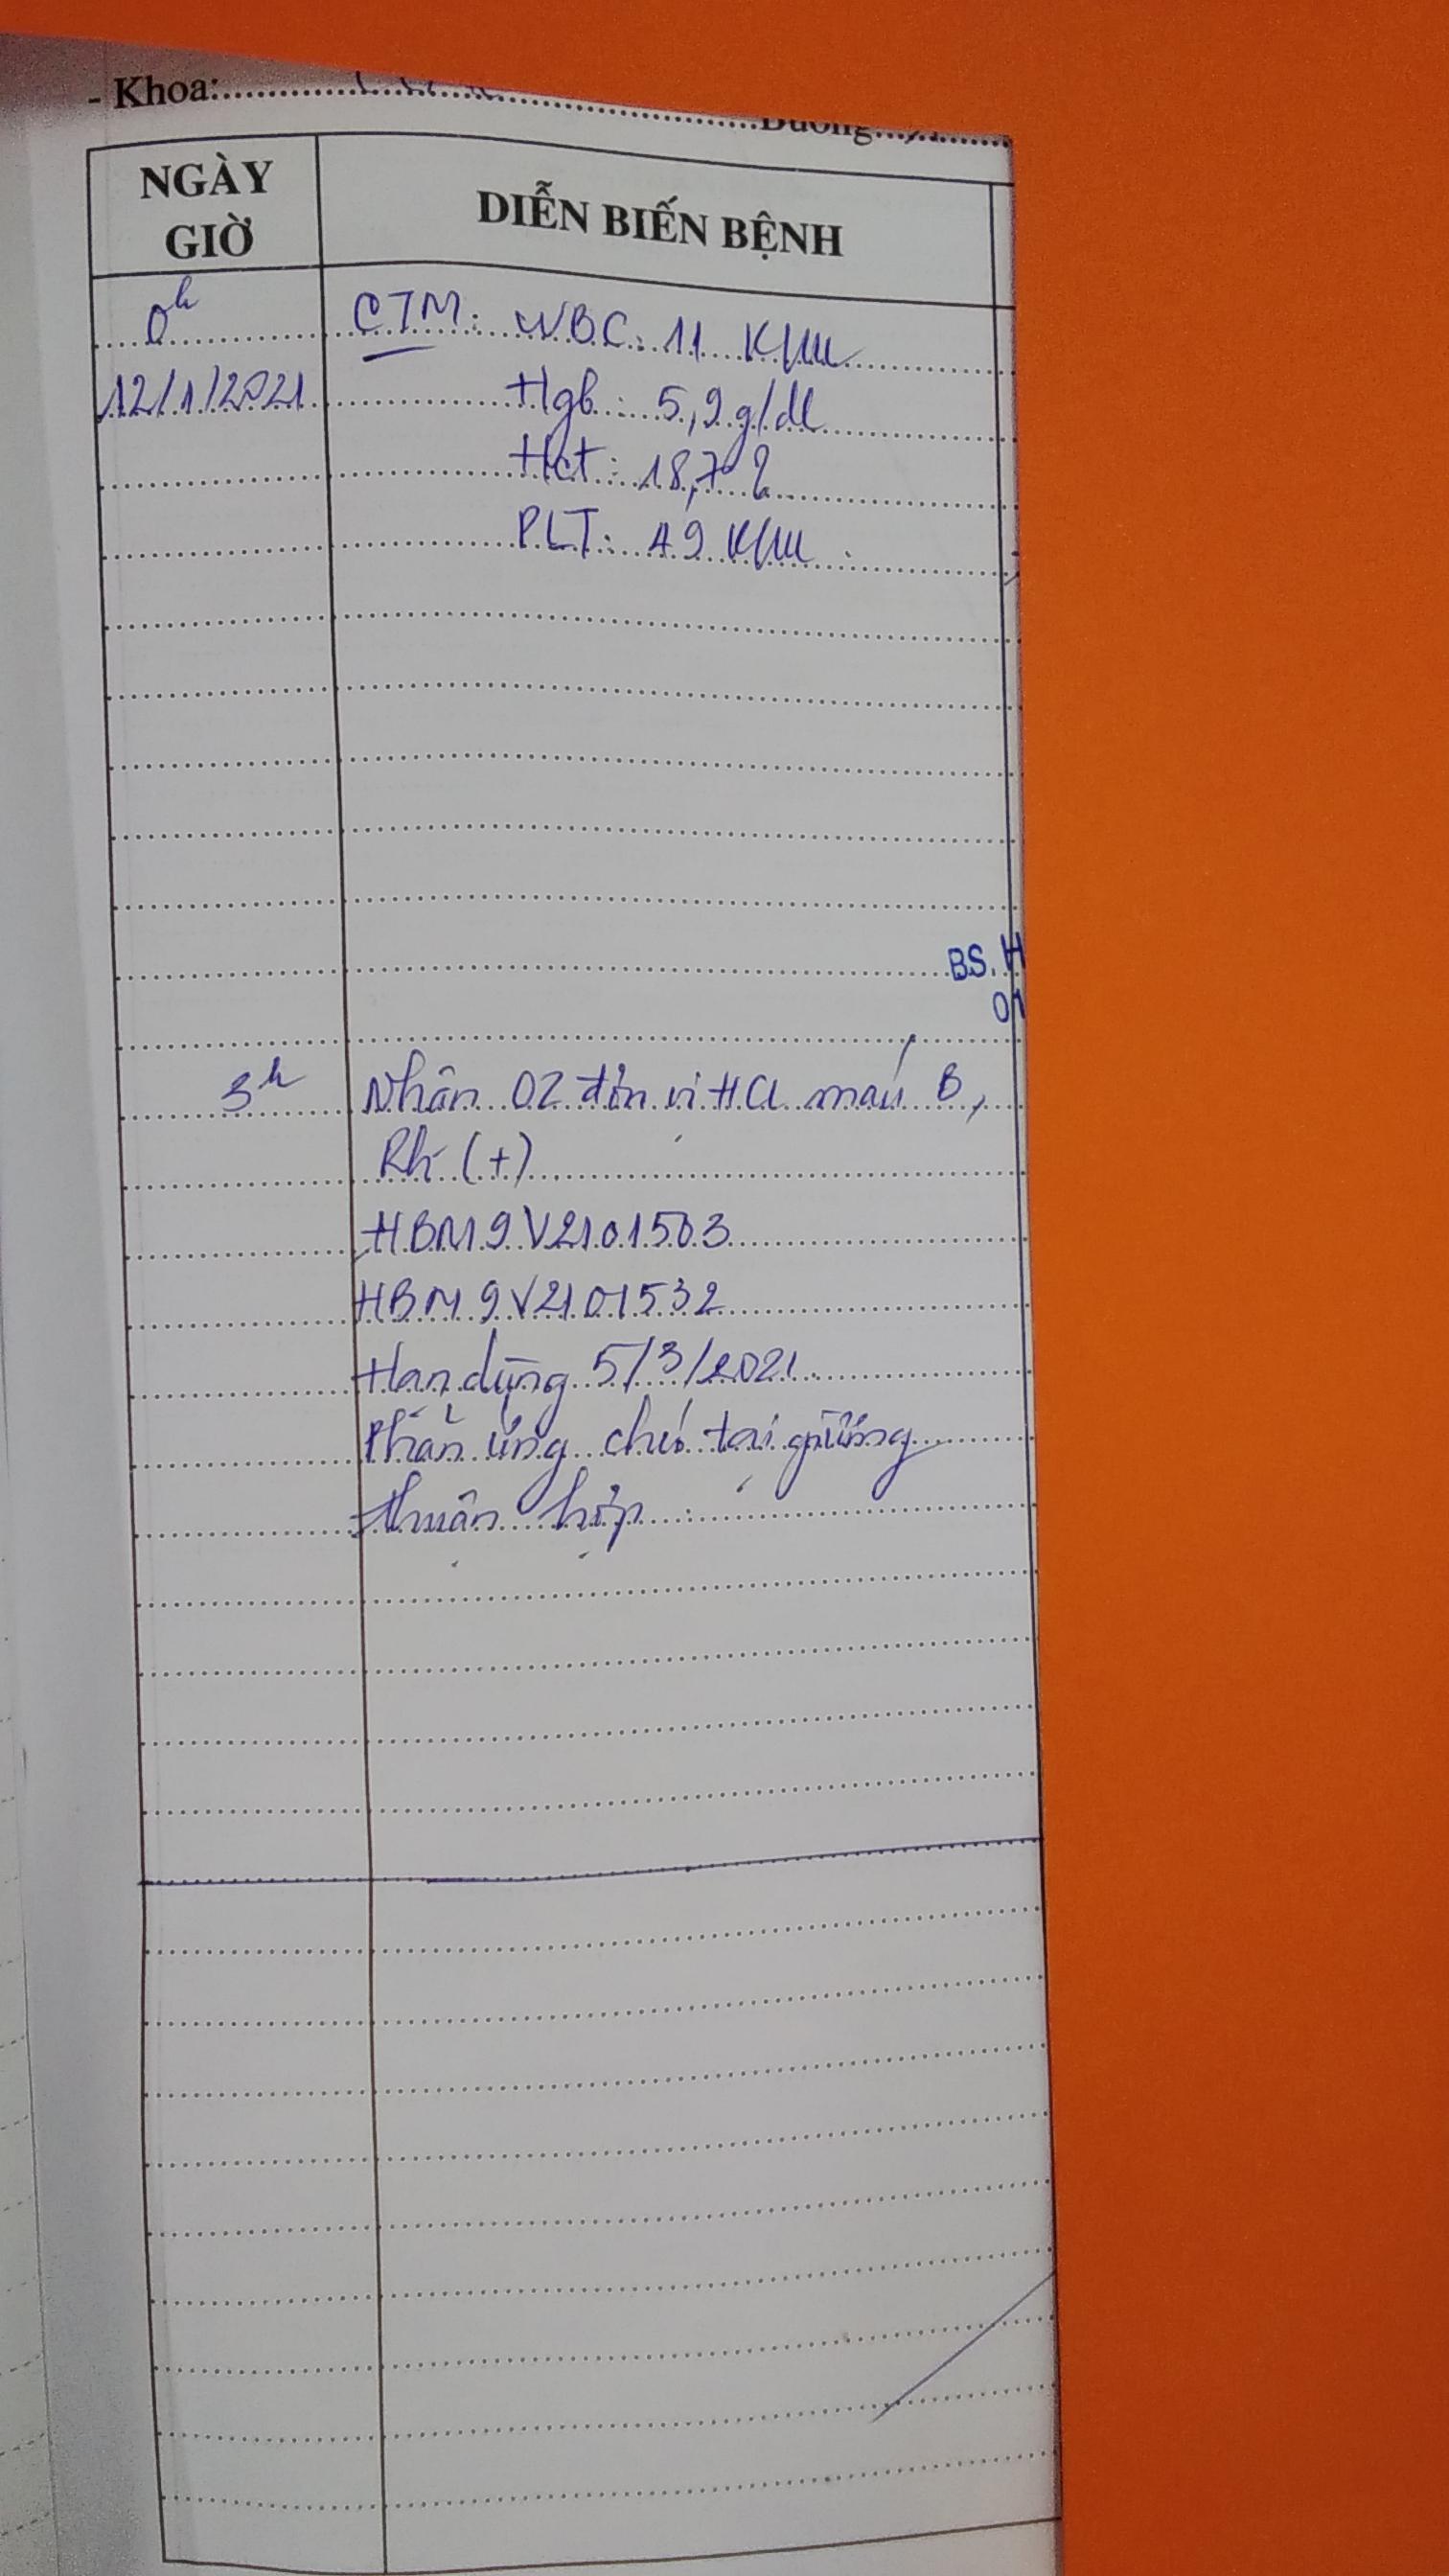 - Khoa:
Buồng
NGÀY
GIỜ
DIỄN BIẾN BỆNH
0h CTM: WBC: 11 K/µu
12/1/2021 Hgb: 5,9 g/dl
Hct: 18,7%
PLT: 49 K/µu.
BS. H
01
3h Nhận 02 đơn vị HCL máu B,
Rh (+)
HBM9V2101503
HBM9V2101532
Hạn dùng 5/3/2021.
Phản ứng chéo tại giường
thuận hợp.